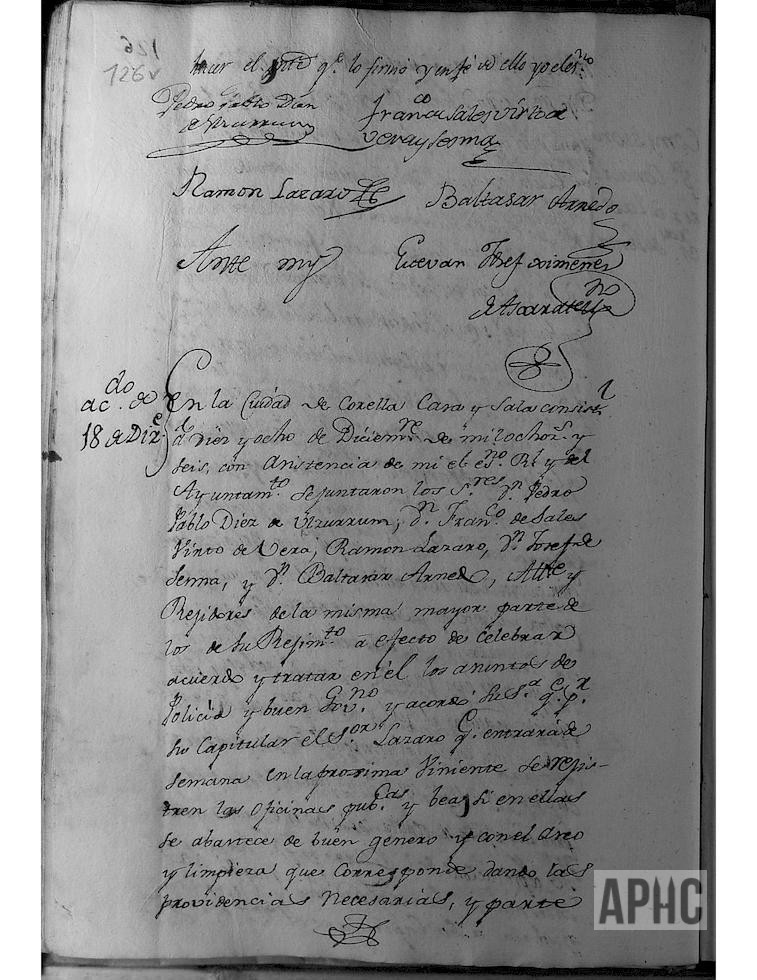 126
126v
hacer el pnte q.e lo firmó y en fé de ello yo el es.no
Pedro Pablo Dian
de Vzurrum
Fran.co Sales Virto de
Vera y Sesma
Ramon Lazaro
Baltasar Arnedo
Ante my
Estevan Josef Ximenez
de Ascarate
no
ac.do de
18 de Diz.e
En la Ciudad de Corella Casa y Sala consist.l
á Diez y ocho de Diciem.re de mil ochoz.s y
seis, con asistencia de mi el es.no Rl y del
Ayuntam.to se juntaron los S.res D.n Pedro
Pablo Diez de Ulzurrum, D.n Fran.co de Sales
Virto de Vera, Ramon Lazaro, D.n Josef de
Sesma, y D.n Baltasar Arnedo, Allde y
Rejidores de la misma mayor parte de
los de su Rejim.to á efecto de celebrar
acuerdo y tratar en él los asuntos de
Policia y buen Gov.no y acordó su S.a q.e p.r
su Capitular el S.or Lazaro q.e entrará de
semana en la proxima Viniente se rejis-
tren las oficinas pub.cas y bea si en ellas
se abastece de buen genero y con el aseo
y limpieza que corresponde dando las
providencias necesarias, y parte
APHC